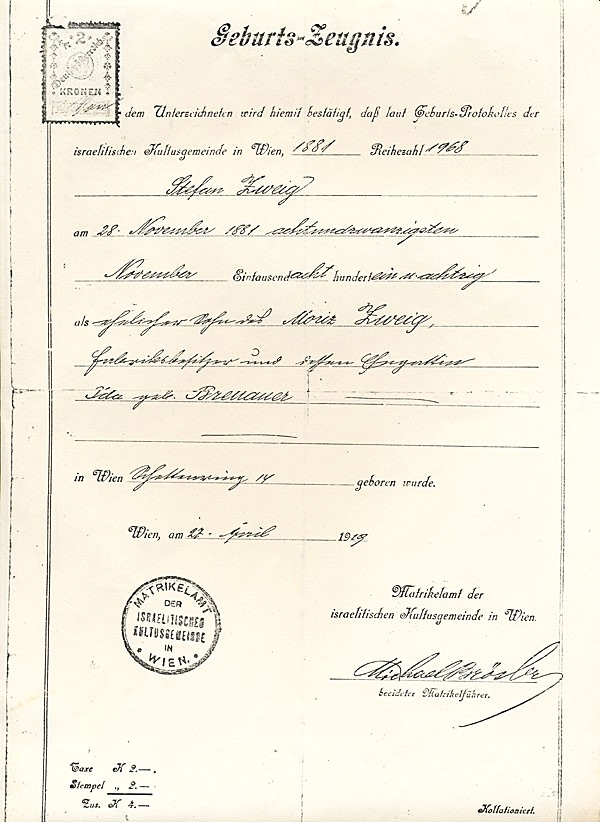 Geburts-Zeugnis.
2
KRONEN
dem Unterzeichneten wird hiemit bestätigt, daß laut Geburts-Protokolles der
israelitischen Kultusgemeinde in Wien, 1881 Reihezahl 1968
Stefan Zweig
am 28. November 1881 achtundzwanzigsten
November Eintausend acht hundert ein u achtzig
als ehelicher Sohn des Moriz Zweig,
Fabriksbesitzer und dessen Ehegattin
Ida geb. Brettauer
in Wien Schottenring 14 geboren wurde.
Wien, am 27. April 1919
MATRIKELAMT
DER
ISRAELITISCHEN
KULTUSGEMEINDE
IN
WIEN.
Matrikelamt der
israelitischen Kultusgemeinde in Wien.
Michael
beeideter Matrikelführer.
Taxe K 2.—
Stempel „ 2.—
Zus. K 4.—
Kollationiert.